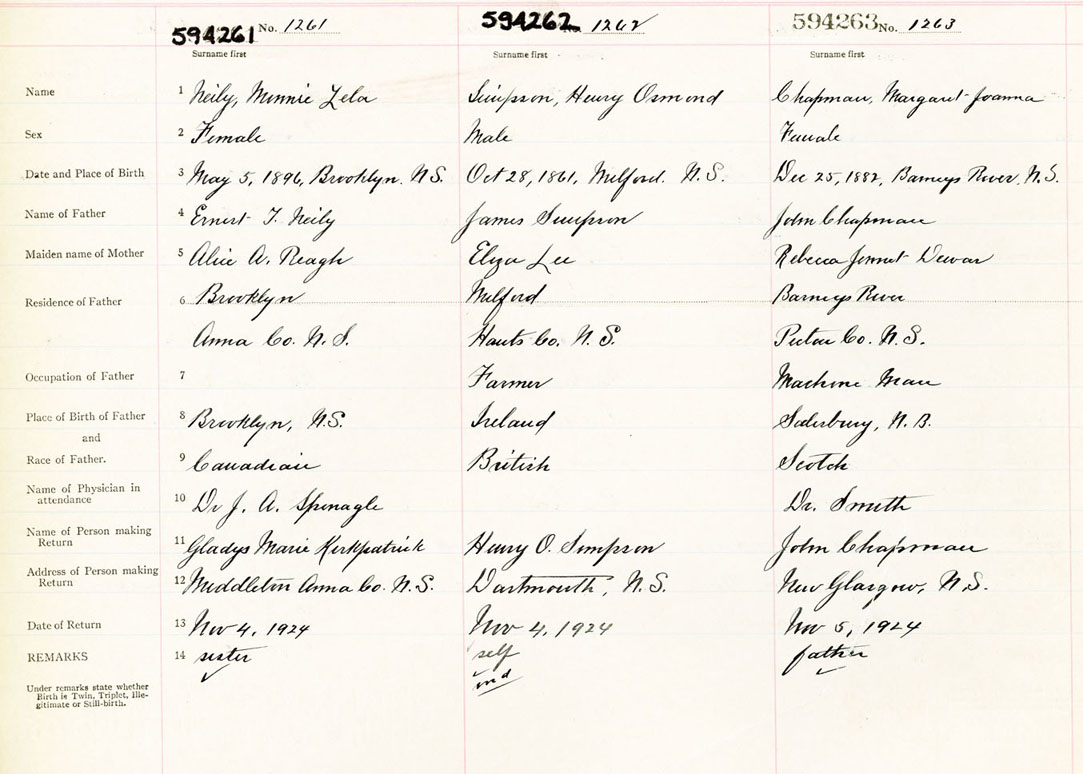 594261 No. 1261 594262 No. 1262 594263 No. 1263
Surname first Surname first Surname first
Name 1 Neily, Minnie Zela Simpson, Henry Osmond Chapman, Margaret Joanna
Sex 2 Female Male Female
Date and Place of Birth 3 May 5, 1896, Brooklyn. N.S. Oct 28, 1861, Milford. N.S. Dec 25, 1882, Barneys River, N.S.
Name of Father 4 Ernest T. Neily James Simpson John Chapman
Maiden name of Mother 5 Alice A. Reagh Eliza Lee Rebecca Dewar
Residence of Father 6 Brooklyn Milford Barneys River
Anna Co. N.S. Hants Co. N.S. Pictou Co. N.S.
Occupation of Father 7 Farmer Machine Man
Place of Birth of Father 8 Brooklyn, N.S. Ireland Salisbury, N.B.
and
Race of Father. 9 Canadian British Scotch
Name of Physician in
attendance 10 Dr J. A. Sponagle Dr. Smith
Name of Person making
Return 11 Gladys Marie Kirkpatrick Henry O. Simpson John Chapman
Address of Person making
Return 12 Middleton Anna Co. N.S. Dartmouth, N.S. New Glasgow, N.S.
Date of Return 13 Nov 4, 1924 Nov 4, 1924 Nov 5, 1924
REMARKS 14 sister self father
ind
Under remarks state whether
Birth is Twin, Triplet, Ille-
gitimate or Still-birth.